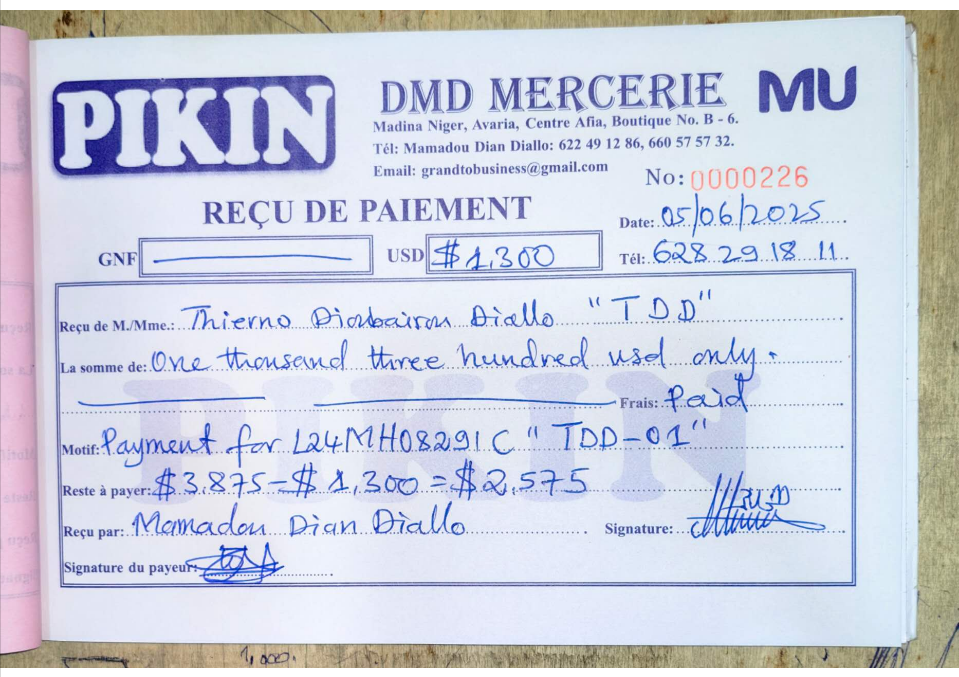 PIKIN
DMD MERCERIE
MU
Madina Niger, Avaria, Centre Afia, Boutique No. B - 6.
Tél: Mamadou Dian Diallo: 622 49 12 86, 660 57 57 32.
Email: grandtobusiness@gmail.com
No: 0000226
REÇU DE PAIEMENT
Date: 05/06/2025
GNF
USD $1,300
Tél: 628 29 18 11
Reçu de M./Mme.: Thierno Diallo "TDD"
La somme de: One thousand three hundred usd only.
Frais: Paid
Motif: Payment for L24MH08291C "TDD-01"
Reste à payer: $3.875-$1,300=$2,575
Reçu par: Mamadou Dian Diallo
Signature:
Signature du payeur:
1,000.